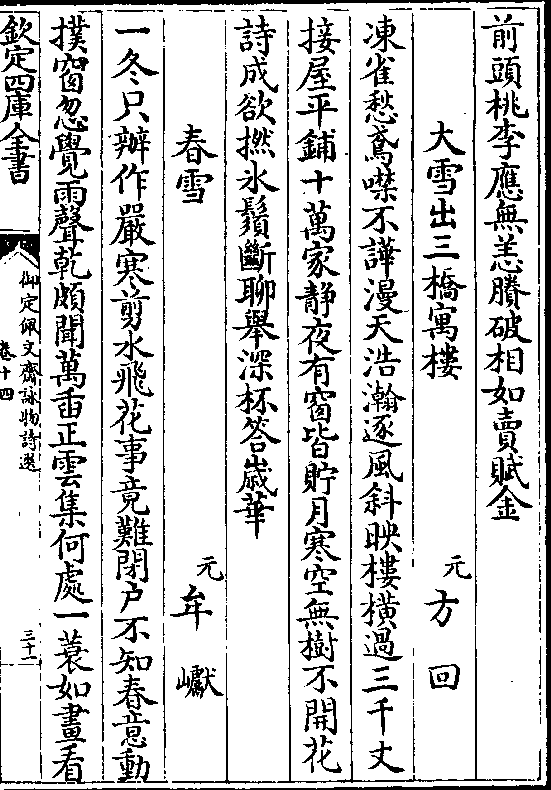 前頭桃李應無恙賸破相如賣賦金
大雪出三橋寓樓　元方回
凍雀愁鳶噤不譁漫天浩瀚逐風斜映樓橫過三千丈
接屋平鋪十萬家静夜有窗皆貯月寒空無樹不開花
詩成欲撚氷鬚斷聊舉深杯答歲華
春雪　元牟巘
一冬只辦作嚴寒剪水飛花事竟難閉户不知春意動
撲窗忽覺雨聲乾頗聞萬臿正雲集何處一蓑如畫看
欽定四庫全書
御定佩文齋詠物詩選
卷十四
三十一